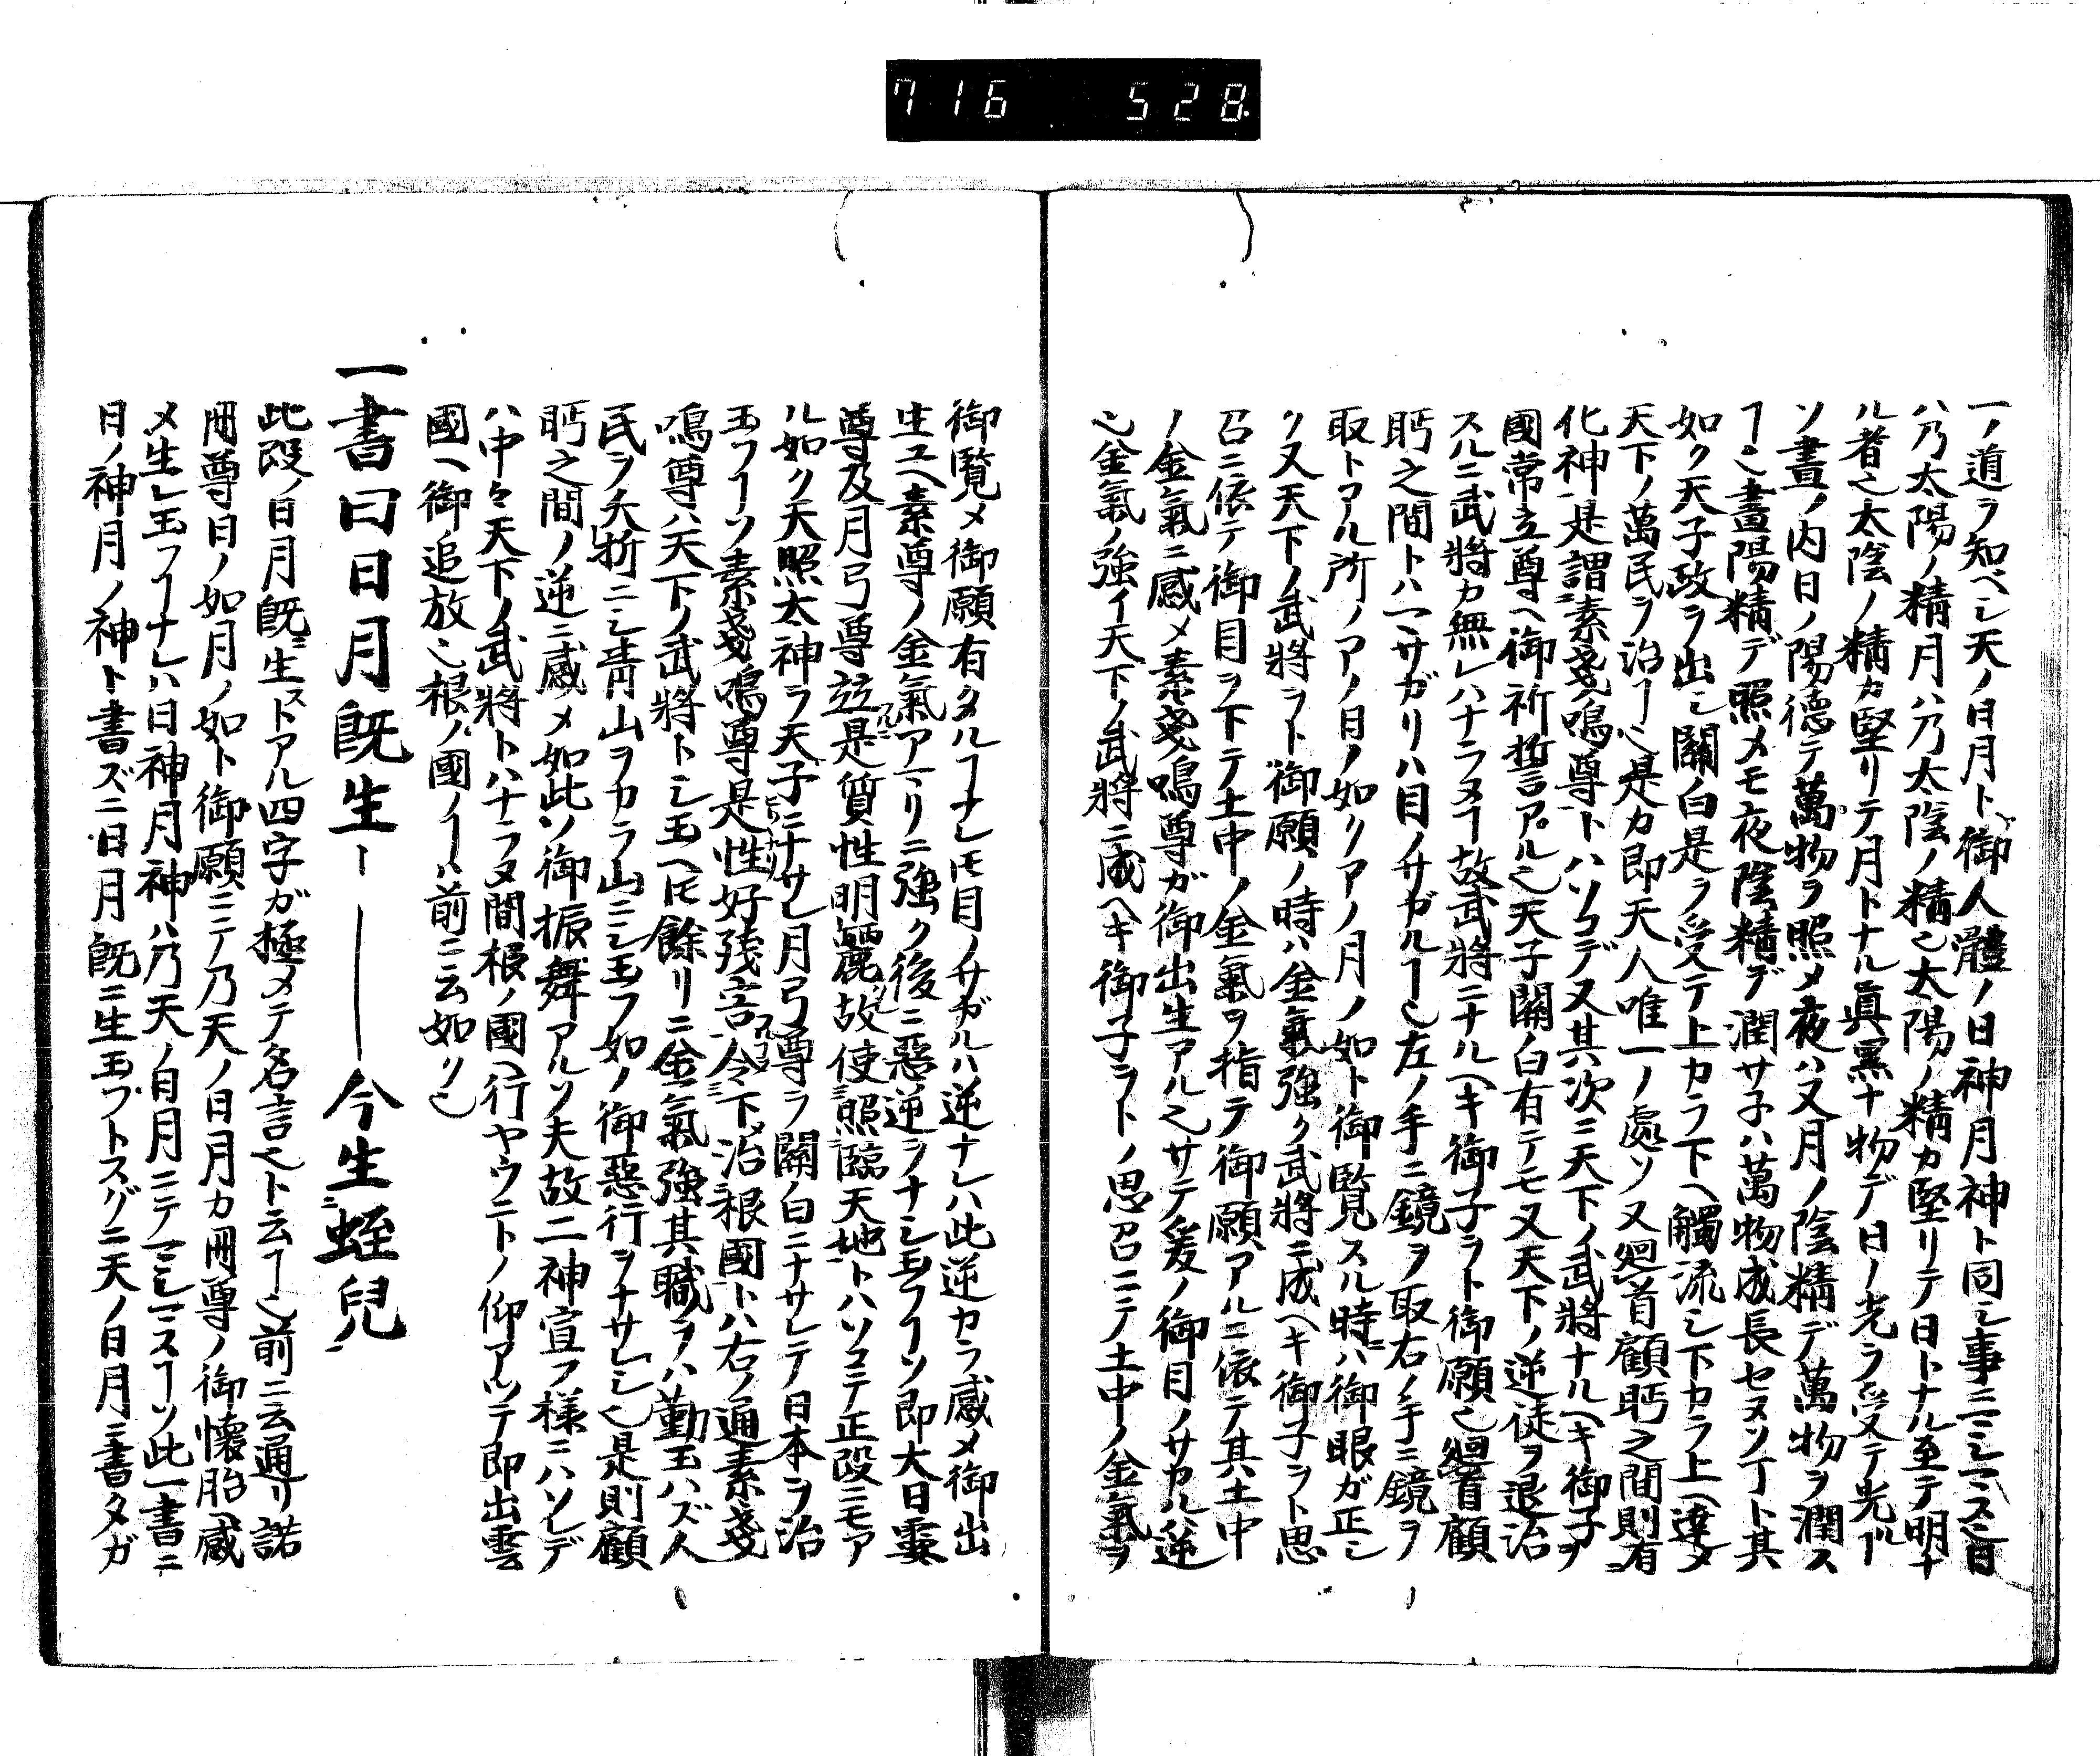 716 528
一ノ道ヲ知ベシ天ノ日月ト御人體ノ日神月神ト同シ事ニシマス日
ハ乃太陽ノ精月ハ乃太陰ノ精也太陽ノ精カ堅リテ日トナル至テ明ナ
ル者也太陰ノ精カ堅リテ月トナル眞黒ナ物デ日ノ光ヲ受テ光ルヿ
ソ晝ノ内日ノ陽徳テ萬物ヲ照メ夜ハ又月ノ陰精デ萬物ヲ潤ス
ヿ也晝陽精デ照メモ夜陰精デ潤サ子ハ萬物成長セヌソ丁ト其
如ク天子政ヲ出シ關白是ヲ受テ上カラ下ヘ觸流シ下カラ上ヘ達メ
天下ノ萬民ヲ治ヿ也是カ即天人唯一ノ處ソ又廻首顧眄之間則有
化神是謂素戔嗚尊トハソコデ又其次ニ天下ノ武將ナルヘキ御子ヲ
國常立尊ヘ御祈誓アル也天子關白有テモ又天下ノ逆徒ヲ退治
スルニ武將カ無レハナラヌヿ故武將ニナルヘキ御子ヲト御願也廻首顧
眄之間トハマサガリハ目ノサガルヿ也左ノ手ニ鏡ヲ取右ノ手ニ鏡ヲ
取トアル所ノアノ日ノ如クアノ月ノ如ト御覧スル時ハ御眼ガ正シ
ク又天下ノ武將ヲト御願ノ時ハ金氣強ク武將ニ成ヘキ御子ヲト思
召ニ依テ御目ヲ下テ土中ノ金氣ヲ指テ御願アルニ依テ其土中
ノ金氣ニ感メ素戔嗚尊ガ御出生アル也サテ爰ノ御目ノサカルハ逆
也金氣ノ強イ天下ノ武將ニ成ヘキ御子ヲトノ思召ニテ土中ノ金氣ヲ
御覧メ御願有タルヿナレモ目ノサガルハ逆ナレハ此逆カラ感メ御出
生ユヘ素尊ノ金氣アマリニ強ク後ニ惡逆ヲナシ玉フヿソ即大日孁
尊及月弓尊竝是質性明麗故使照臨天地トハソコテ正段ニモア
ル如ク天照太神ヲ天子ニナサレ月弓尊ヲ關白ニナサレテ日本ヲ治
玉フヿソ素戔嗚尊是性好残害故令下治根國トハ右ノ通素戔
嗚尊ハ天下ノ武將トシ玉ヘモ餘リニ金氣強其職ヲハ勤玉ハズ人
民ヲ夭折ニシ青山ヲカラ山ニシ玉フ如ノ御惡行ヲナサレシ也是則顧
眄之間ノ逆ニ感メ如此ソ御振舞アルソ夫故二神宣フ様ニハソレデ
ハ中々天下ノ武將トハナラヌ間根ノ國ヘ行ヤウニトノ仰アツテ即出雲
國ヘ御追放也根ノ國ノヿハ前ニ云如ク也
一書曰日月既生ー――今生蛭兒
此段ノ日月既ニ生ストアル四字ガ極メテ名言也ト云ヿ也前ニ云通リ諾
冊尊日ノ如月ノ如ト御願ニテ乃天ノ日月カ冊尊ノ御懐胎感
メ生レ玉フヿナレハ日神月神ハ乃天ノ日月ニテマシマスヿソ此一書ニ
日ノ神月ノ神ト書ズニ日月既ニ生玉フトスグニ天ノ日月ニ書タガ